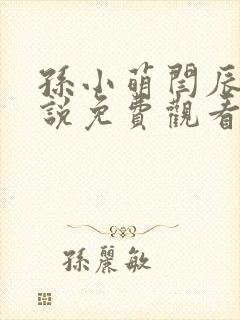 孫小萌閆辰
說免費觀看
孫麗敏